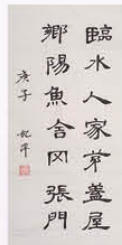 臨水人家茅蓋屋
鄉陽魚舍网張門
庚子 紀澤